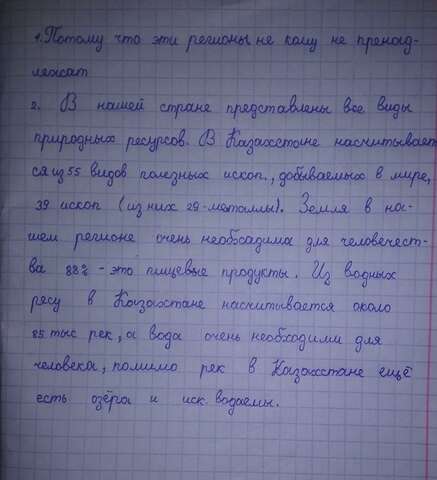 1. Потому что эти регионы не кому не пренад-
лежат
2. В нашей стране представлены все виды
природных ресурсов. В Казахстане насчитывает
ся из 55 видов полезных ископ., добываемых в мире,
39 ископ (из них 29-металлы). Земля в на-
шем регионе очень необсадима для человечест-
ва 88% - это пищевые продукты. Из водных
ресу в Казахстане насчитывается около
85 тыс рек, а вода очень необходими для
человека, помимо рек в Казахстане ещё
есть озёра и иск. водаемы.